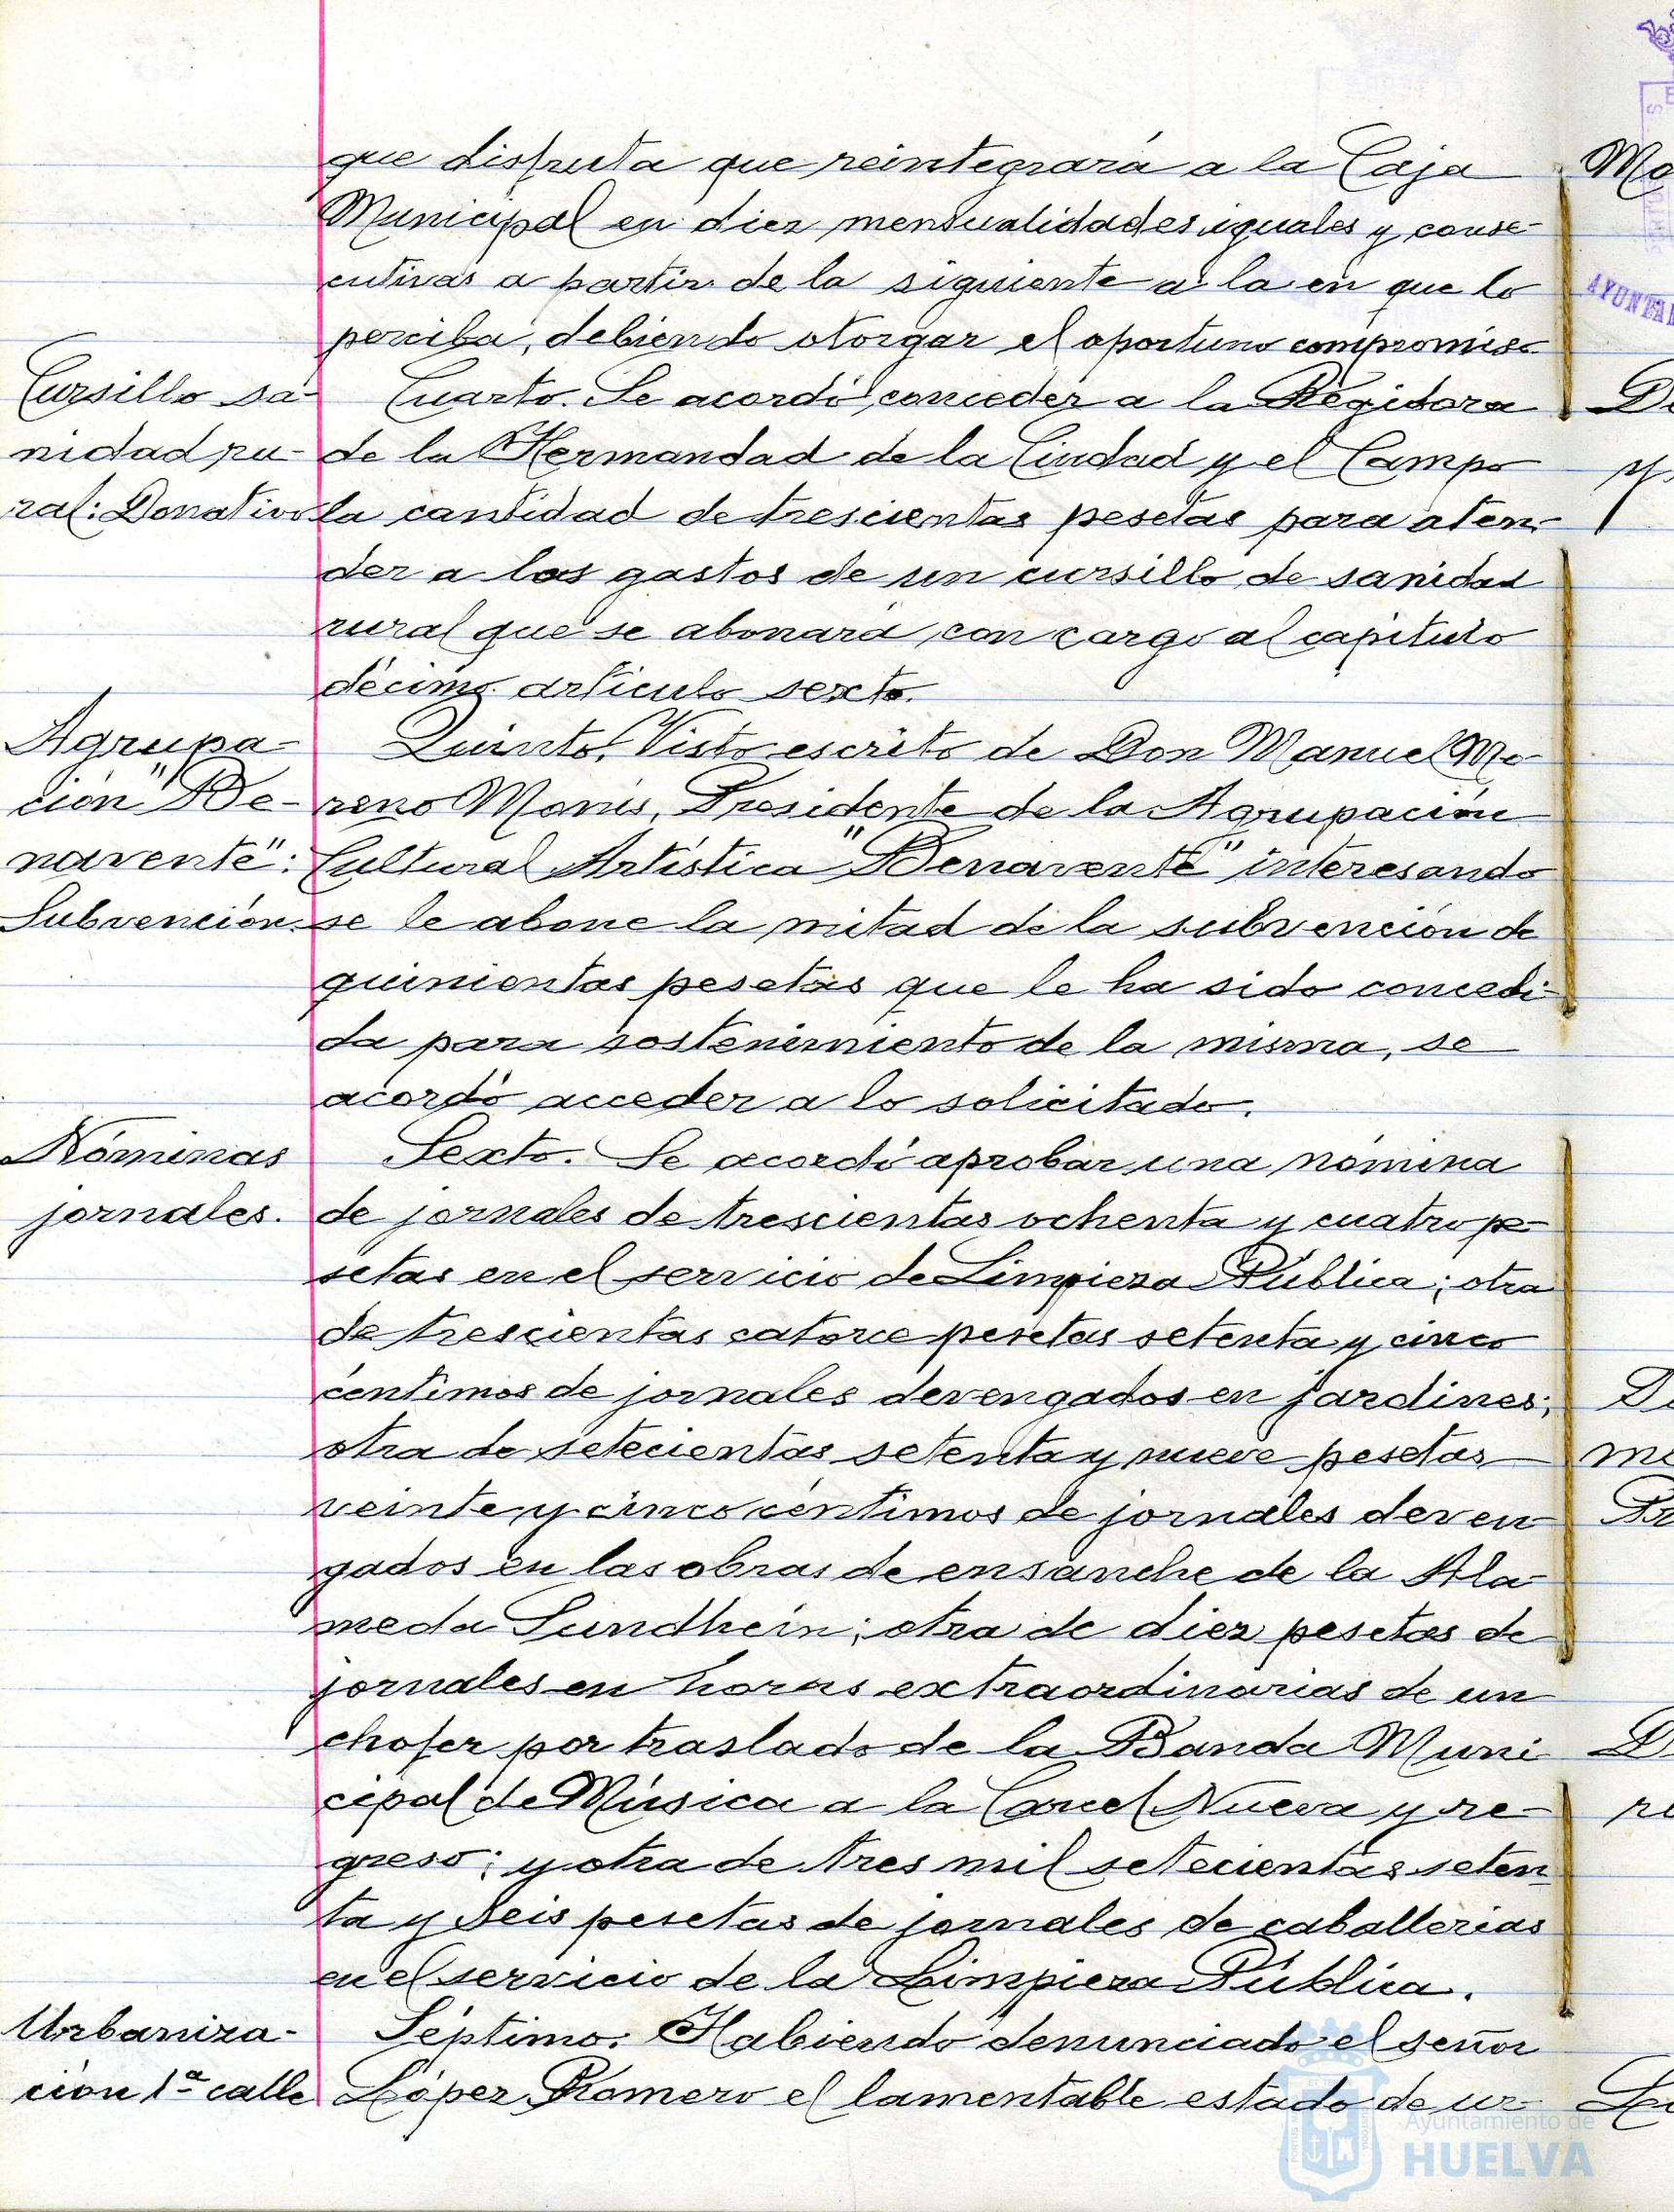 que disfruta que reintegrará a la Caja
Municipal en diez mensualidades iguales y conse-
cutivas a partir de la siguiente a la en que lo
perciba, debiendo otorgar el oportuno compromiso.
Cursillo sa-
nidad ru-
ral: Donativo
Cuarto. Se acordó conceder a la Regidora
de la Hermandad de la Ciudad y el Campo
la cantidad de trescientas pesetas para aten-
der a los gastos de un cursillo de sanidad
rural que se abonará con cargo al capítulo
décimo artículo sexto.
Agrupa-
ción "Be-
navente":
Subvención.
Quinto. Visto escrito de Don Manuel Mo-
reno Monís, Presidente de la Agrupación
Cultural Artística "Benavente" interesando
se le abone la mitad de la subvención de
quinientas pesetas que le ha sido concedi-
da para sostenimiento de la misma, se
acordó acceder a lo solicitado.
Nóminas
jornales.
Sexto. Se acordó aprobar una nómina
de jornales de trescientas ochenta y cuatro pe-
setas en el servicio de Limpieza Pública; otra
de trescientas catorce pesetas setenta y cinco
céntimos de jornales devengados en jardines;
otra de setecientas setenta y nueve pesetas
veinte y cinco céntimos de jornales deven-
gados en las obras de ensanche de la Ala-
meda Sundhein; otra de diez pesetas de
jornales en horas extraordinarias de un
chofer por traslado de la Banda Muni-
cipal de Música a la Carcel Nueva y re-
greso; y otra de tres mil setecientas seten-
ta y seis pesetas de jornales de caballerías
en el servicio de la Limpieza Pública.
Urbaniza-
ción 1ª calle
Séptimo. Habiendo denunciado el señor
López Romero el lamentable estado de ur-
Ayuntamiento de
HUELVA